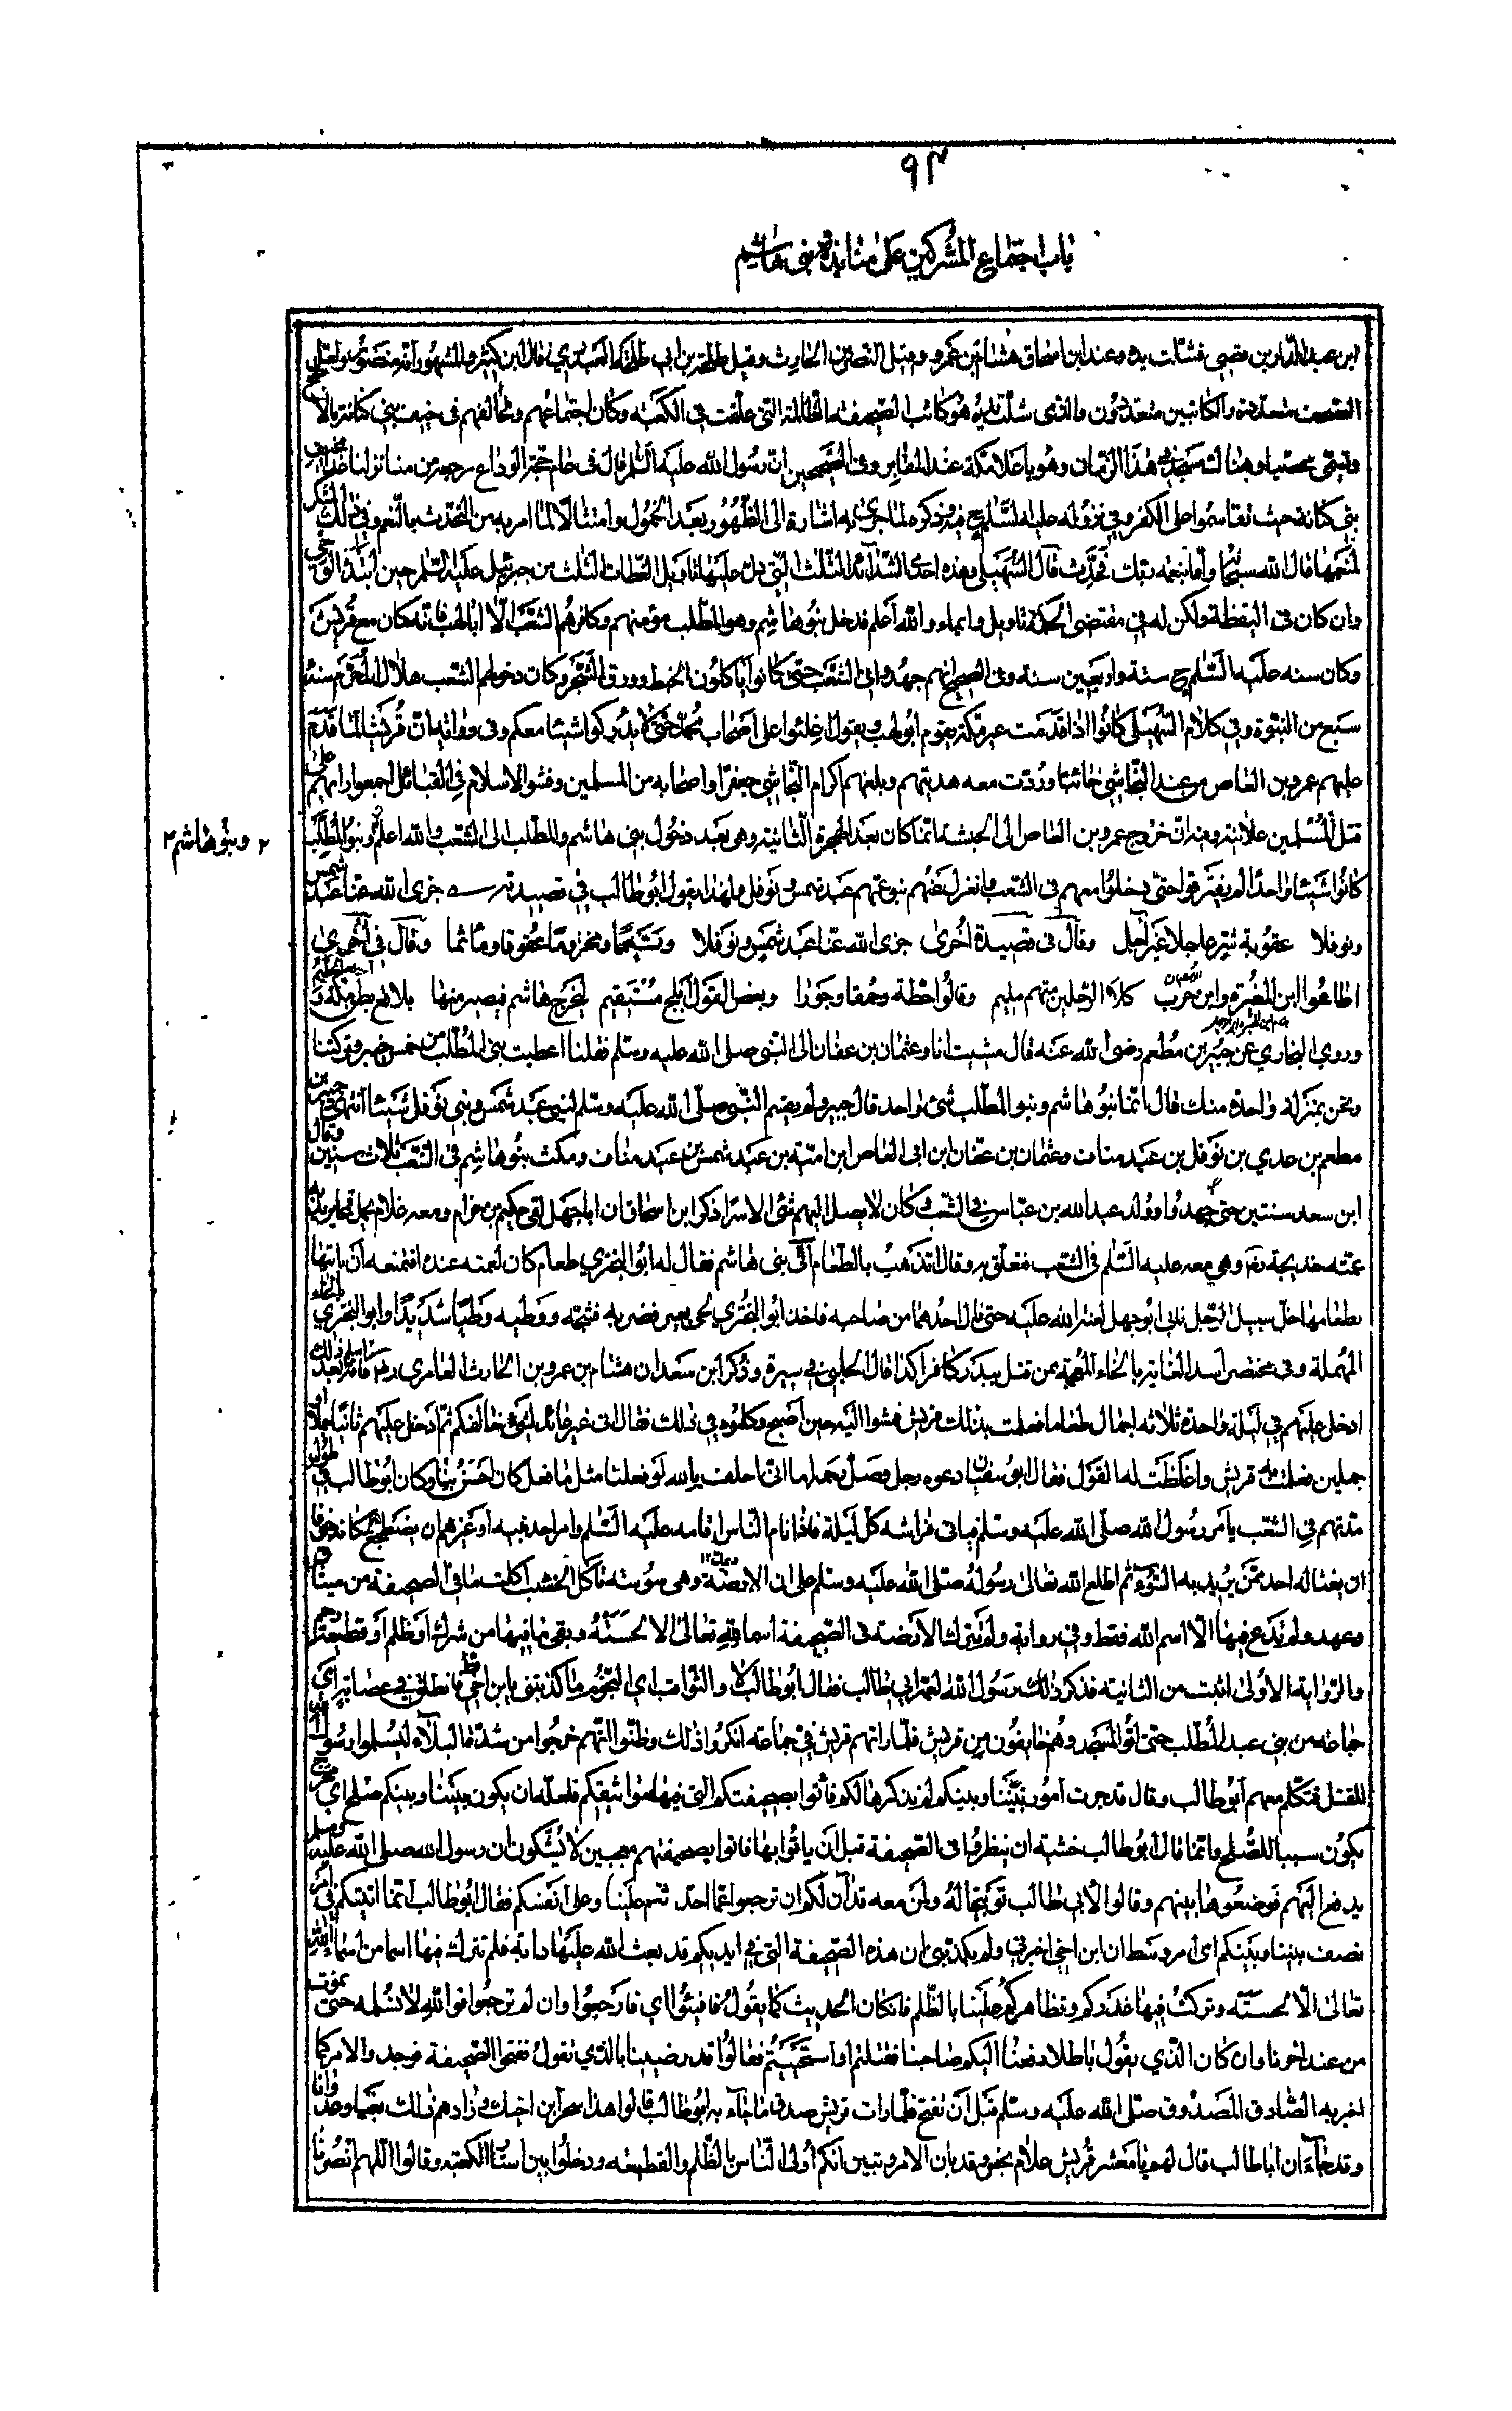 ٩٣
باب اجتماع المشركين على منابذة بني هاشم
ابن عبد الدار بن قصي فشلت يده وعند ابن اسحاق هشام بن عمرو وقيل النضر بن الحارث وقيل طلحة بن ابي طلحة العبدري قال ابن كثير والمشهور انه منصور
الصحف متعددة والكاتبين متعددون والذي شلت يده هو كاتب الصحيفة الظالمة التي علقت في الكعبة وكان اجتماعهم وتحالفهم في خيف بني كنانة بالابطح
ويسمى محصبا وهناك مسجد في هذا الزمان وهو باعلا مكة عند المقابر وفي الصحيحين ان رسول الله عليه السلام قال في عام حجة الوداع من منا نزلنا غدا بخيف
بني كنانة حيث تقاسموا على الكفر وفي نزوله عليه السلام فيه وذكره لما جرى به اشارة الى الظهور بعد الخمول وامتثالا لما امر به من التحدث بالنعم وفي ذلك الشكر
لمنعمها قال الله سبحانه واما بنعمة ربك فحدث قال السهيلي وهذه احدى الشدائد الثلث التي دل عليها تاويل الغطات الثلث من جبرئيل عليه السلام حين ابتداء الوحي
وان كان في اليقظة ولكن له في مقتضى الحكمة تاويل وايماء والله اعلم فدخل بنو هاشم وهو المطلب مؤمنهم وكافرهم الشعب الا ابا لهب فانه كان مع قريش
وكان سنه عليه السلام ستة واربعين سنة وفي الصحيح انهم جهدوا في الشعب حتى كانوا ياكلون الخبط وورق الشجر وكان دخولهم الشعب هلال المحرم سنة
سبع من النبوة وفي كلام السهيلي كانوا اذا قدمت عير مكة يقوم ابو لهب ويقول اغلوا على اصحاب محمد حتى لا يدركوا شيئا معكم وفي ان قريشا لما قدم
عليهم عمرو بن العاص من عند النجاشي خائبا وردت معه هديتهم وبلغهم اكرام النجاشي جعفرا واصحابه من المسلمين وفشو الاسلام في القبائل اجمعوا رايهم على
قتل المسلمين علانية وفيه ان خروج عمرو بن العاص الى الحبشة انما كان بعد الهجرة الثانية وهي بعد دخول بني هاشم والمطلب الى الشعب والله اعلم وبنو المطلب
٢ وبنو هاشم ٢
كانوا شيئا واحدا لم يفترقوا حتى دخلوا معهم في الشعب وانعزل عنهم بنو عمهم عبد شمس ونوفل ولهذا يقول ابو طالب في قصيدته جزى الله عنا عبد شمس
ونوفلا عقوبة شر عاجلا غير آجل وقال في قصيدة اخرى جزى الله عنا عبد شمس ونوفلا وتيما ومخزوما عقوقا وماثما وقال في اخرى
اطاعوا ابن المغيرة وابن حرب كلا الرجلين متهم مليم وقالوا خطة وحمقا وجورا وبعض القول ابلج مستقيم لتخرج هاشم فيصير منها بلاقع بطن مكة
وروي البخاري عن جبير بن مطعم رضى الله عنه قال مشيت انا وعثمان بن عفان الى النبي صلى الله عليه وسلم فقلنا اعطيت بني المطلب من خمس خيبر وتركتنا
ونحن بمنزلة واحدة منك قال انما بنو هاشم وبنو المطلب شئ واحد قال جبير ولم يقسم النبي صلى الله عليه وسلم لبني عبد شمس وبني نوفل شيئا انتهى جبير بن
مطعم بن عدي بن نوفل بن عبد مناف وعثمان بن عفان ابن ابى العاص ابن امية بن عبد شمس بن عبد مناف ومكث بنو هاشم في الشعب ثلاث سنين وقال
ابن سعد سنتين حتى جهدوا وولد عبد الله بن عباس في الشعب وكان لا يصل اليهم شئ الا سرا ذكر ابن اسحاق ان ابا جهل لقي حكيم بن حزام ومعه غلام يحمل قمحا يريد به
عمته خديجة وهي معه عليه السلام في الشعب فتعلق به وقال اتذهب بالطعام الى بني هاشم فقال له ابو البختري طعام كان لعمته عنده افتمنعه ان ياتيها
بطعامها خل سبيل الرجل فابى ابو جهل لعنة الله عليه حتى نال احدهما من صاحبه فاخذ ابو البختري لحى بعير فضربه به فشجه ووطيه وطيا شديدا وابو البختري بالحاء
المهملة وفي مختصر اسد الغابة بالخاء المعجمة ممن قتل ببدر كافرا كذا قال الحلبي في سيرة وذكر ابن سعد ان هشام بن عمرو بن الحارث العامري اسلم بعد ذلك
ادخل عليهم في ليلة واحدة ثلاثة اجمال طعاما فعلمت بذلك قريش فمشوا اليه حين اصبح وكلموه في ذلك فقال انى غير عائد لشئ خالفكم ثم دخل عليهم ثانيا حملا او
جملين فعلمت به قريش واغلظت له القول فقال ابو سفيان دعوه رجل وصل رحمه اما اني احلف بالله لو فعلنا مثل ما فعل كان احسن بنا وكان ابو طالب في طول
مدتهم في الشعب يامر رسول الله صلى الله عليه وسلم فياتي فراشه كل ليلة فاذا نام الناس اقامه عليه السلام وامر احد بنيه او غيرهم ان يضطجع مكانه خوفا
ان يغتاله احد ممن يريد به السوء ثم اطلع الله تعالى رسوله صلى الله عليه وسلم على ان الارضة وهي سوسة تاكل الخشب اكلت ما في الصحيفة من ميثاق
وعهد ولم تدع فيها الا اسم الله فقط وفي رواية ولم تترك الارضة في الصحيفة اسما لله تعالى الا لحسته وبقي ما فيها من شرك او ظلم او قطيعة رحم
والرواية الاولى اثبت من الثانية فذكر ذلك رسول الله لعمه ابي طالب فقال ابو طالب لا والثواقب اي النجوم ما كذبتنى يا ابن اخي قط فانطلق في عصابة اي
جماعة من بني عبد المطلب حتى اتوا المسجد وهم خايفون من قريش فلما راتهم قريش في جماعة انكروا ذلك وظنوا انهم خرجوا من شدة البلاء ليسلموا رسول الله
للقتل فتكلم معهم ابو طالب وقال قد جرت امور بيننا وبينكم لم نذكرها لكم فأتوا بصحيفتكم التي فيها مواثيقكم فلعله ان يكون بيننا وبينكم صلح اي مخرج
يكون سببا للصلح وانما قال ابو طالب خشية ان ينظروا في الصحيفة قبل ان ياتوا بها فاتوا بصحيفتهم معجبين لا يشكون ان رسول الله صلى الله عليه وسلم
يدفع اليهم فوضعوها بينهم وقالوا لابي طالب توبيخا له ولمن معه قد آن لكم ان ترجعوا عما احدثتم علينا وعلى انفسكم فقال ابو طالب انما اتيتكم في امر
نصف بيننا وبينكم اى امر وسط ان ابن اخي اخبرني ولم يكذبني ان هذه الصحيفة التي في ايديكم قد بعث الله عليها دابة فلم تترك فيها اسما من اسماء الله
تعالى الا لحسته وتركت فيها غدركم وتظاهركم علينا بالظلم فان كان الحديث كما يقول فافيئوا اي فارجعوا وان لم ترجعوا فوالله لا نسلمه حتى نموت
من عند اخرنا وان كان الذي يقول باطلا دفعنا اليكم صاحبنا فقتلتم او استحييتم فقالوا قد رضينا بالذي تقول ففتحوا الصحيفة فوجدوا الامر كما
اخبر به الصادق المصدوق صلى الله عليه وسلم قبل ان تفتح فلما رات قريش صدق ما جاء به ابو طالب قالوا هذا سحر ابن اخيك وزادهم ذلك بغيا وعدوانا
وقد جاء ان ابا طالب قال لهم يا معشر قريش علام نحصر وقد بان الامر وتبين انكم أولى الناس بالظلم والقطيعة ودخلوا بين استار الكعبة وقالوا اللهم انصرنا